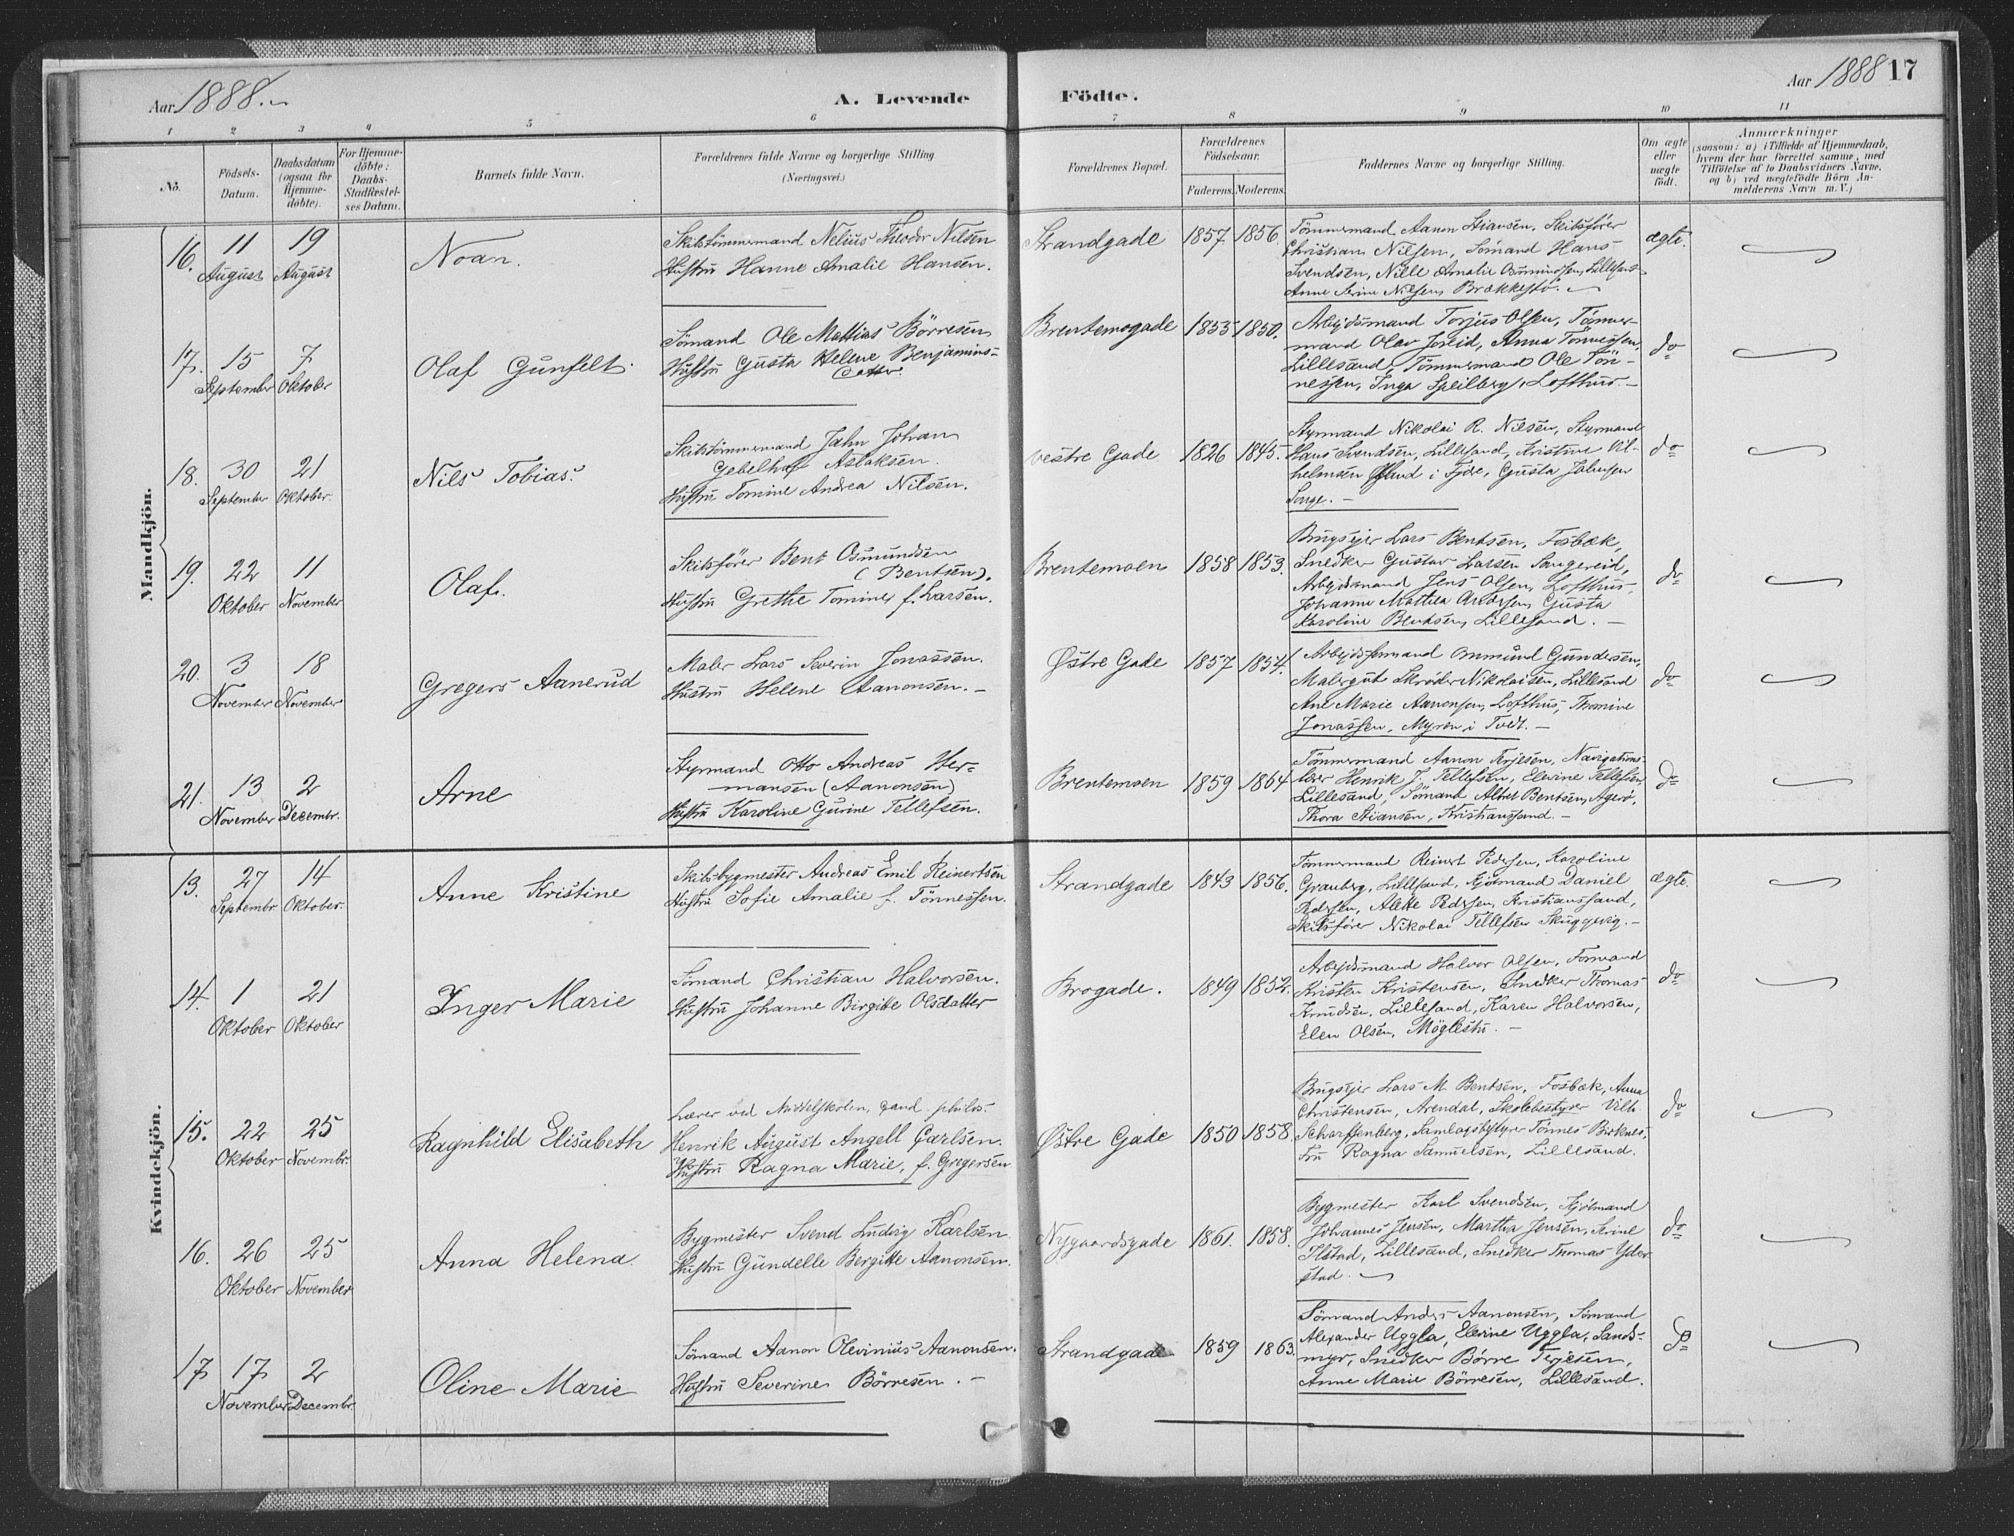 Aar 1888. A. Levende Födte. Aar 1888 17
1 2 3 4 5 6 7 8 9 10 11
No. Födsels-Datum. Daabsdatum (ogsaa for Hjemmedöbte). For Hjemmedöbte: Daabs-Stadfæstelses Datum. Barnets fulde Navn. Forældrenes fulde Navne og borgerlige Stilling (Næringsvei.) Forældrenes Bopæl. Forældrenes Födselsaar. Faderens. Moderens. Faddernes Navne og borgerlige Stilling. Om ægte eller uægte födt. Anmærkninger
(saasom: a) i Tilfælde af Hjemmedaab, hvem der har forrettet samme, med Tilföielse af to Daabsvidners Navne, og b) ved uægtefödte Börn Anmelderens Navn m. V.)
Mandkjön.
16. 11 August 19 August Noan.
Skibstömmermand Nelius Theodor Nilsen
Hustru Hanne Amalie Hansen.
Strandgade 1857 1856
Tömmermand Aanon Stiansen, Skibsförer
Christian Nilsen, Sömand Hans
Svendsen, Nille Amalie Osmundsen, Lillesand
Anne Serine Nilsen, Brækkestö.
ægte.
17. 15 September 7 Oktober Olaf Gunfelt.
Sömand Ole Mattias Börresen
Hustru Gusta Helene Benjamins-
datter.
Brentemogade 1855 1850.
Arbejdsmand Torjus Olsen, Tömmer-
mand Olav Jereid, Anna Tönnesen,
Lillesand, Tömmermand Ole Tön-
nessen, Inga Speilberg, Lofthus
do
18. 30 September 21 Oktober. Nils Tobias.
Skibstömmermand Jahn Johan
Gebelhaf Aslaksen.
Hustru Tomine Andrea Nilsen.
vestre Gade 1826 1845.
Styrmand Nikolai R. Nilsen, Styrmand
Hans Svendsen, Lillesand, Kristine Vil-
helmsen i Fjære, Gusta Johnsen
Songe.
do
19. 22 Oktober 11 November Olaf.
Skibsförer Bent Osmundsen
(Bentsen).
Hustru Grethe Tomine f. Larsen.
Brentemoen 1858 1853.
Brugsejer Lars Bentsen, Fosbæk,
Snedker Gustav Larsen Sangereid,
Arbejdsmand Jens Olsen, Lofthus,
Johanne Mathea Andersen, Gusta
Karoline Bentsen, Lillesand.
do
20. 3 November 18 November Gregers Aanerud
Maler Lars Severin Jonassen.
Hustru Helene Aanonsen.
Østre Gade 1857 1854.
Arbejdsformand Onmund Gundersen,
Malergut Skrøder Nikolaisen, Lillesand
Ane Marie Aanonsen, Lofthus, Thomine
Jonassen, Myren i Tvedt.
do
21. 13 November 2 Decembr. Arne
Styrmand Otto Andreas Her-
mansen (Aanonsen)
Hustru Karoline Gurine Tellefsen.
Brentemoen 1859 1864
Tömmermand Aanon Terjesen, Navigations-
lærer Henrik J. Tellefsen, Elevine Tellefsen
Lillesand, Sömand Albret Bentsen, Agerö,
Thora Stiansen, Kristianssand.
do
Kvindekjön.
13. 27 Septembr 14 Oktober. Anne Kristine
Skibsbygmester Andreas Emil Reinertsen
Hustru Sofie Amalie f. Tönnessen.
Strandgade 1843 1856.
Tömmermand Reinert Pedersen, Karoline
Granberg, Lillesand, Kjöbmand Daniel
Pedersen, Alette Pedersen, Kristianssand,
Skibsförer Nikolai Tellefsen Skuggevig.
ægte.
14. 1 Oktober 21 Oktober Inger Marie
Sömand Christian Halvorsen.
Hustru Johanne Birgitte Olsdatter
Brogade. 1849 1852.
Arbejdsmand Halvor Olsen, Formand
Kristen Kristensen, Snedker Thomas
Knudsen, Lillesand, Karen Halvorsen,
Elen Olsen, Möglestu.
do
15. 22 Oktober 25 Novembr. Ragnhild Elisabeth
Lærer ved Middelskolen, cand. philos.
Henrik August Angell Carlsen.
Hustru Ragna Marie, f. Gregersen
Østre Gade 1850 1858.
Brugsejer Lars M. Bentsen, Fosbæk, Anna
Christensen, Arendal, Skolebestyrer Vilh.
Scharffenberg, Samlagsbestyrer Tönnes Birknes,
Fru Ragna Samuelsen, Lillesand.
do
16. 26 Oktober 25 November Anna Helena.
Bygmester Svend Ludvig Karlsen
Hustru Gundelle Bergitte Aanonsen.
Nygaardsgade 1861. 1858.
Bygmester Karl Svendsen, Kjöbmand
Johannes Jensen, Martha Jensen, Serine
Ilstad, Lillesand, Snedker Thomas Yder-
stad.
do
17 17 November 2 Decembr. Oline Marie
Sömand Aanon Olevinius Aanonsen.
Hustru Severine Börresen.
Strandgade 1859 1863.
Sömand Anders Aanonsen, Sömand
Alexander Uggla, Elevine Uggla, Sands-
myr, Snedker Börre Terjesen,
Anne Marie Börresen, Lillesand.
do